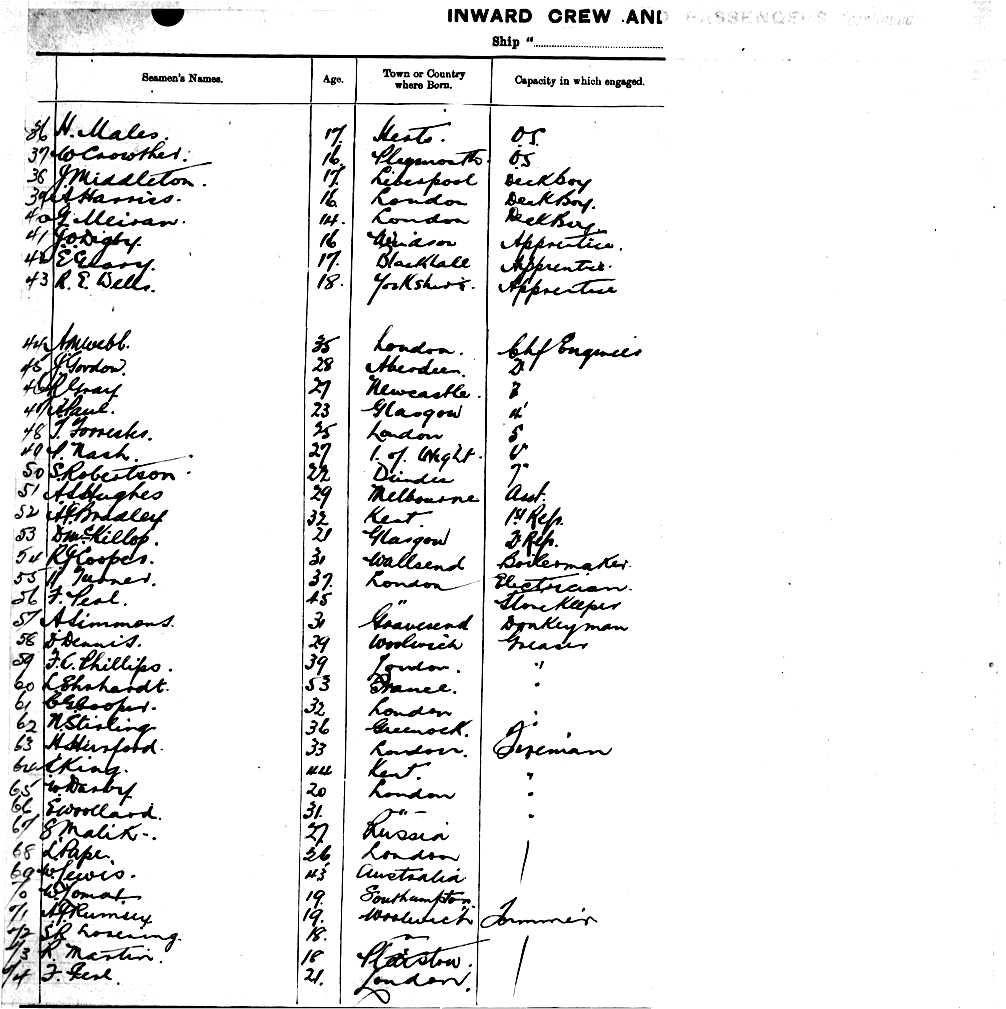 INWARD CREW AND PASSENGERS
Ship "
Seamen's Names. Age. Town or Country where Born. Capacity in which engaged.
36 H. Males. 17 Herts. O.S
37 W Crowther. 16 Plegmouth. O.S
38 J. Middleton. 17 Liverpool Deck Boy
39 A Harriss. 16 London Deck Boy.
40 G. 14. London Deck Boy
41 J. O Digby. 16 Windsor Apprentice.
42 E Geary. 17. Blackhall Apprentice.
43 R. E. Wells. 18. Yorkshire. Apprentice
44 A M Webb. 35 London. Chf Engineer
45 J. Gordon. 28 Aberdeen. 2
46 R Gray 27 Newcastle. 3
47 A. Paul. 23 Glasgow 4
48 T. Forrester. 25 London 5
49 P. Nash. 27 I. of Wight. 6
50 S. Robertson 22 Dundee 7
51 A S Hughes 29 Melbourne Asst.
52 A G Bradley 32 Kent. 1st Refr.
53 D McKillop. 21 Glasgow 2 Refr.
54 R G Cooper. 31 Wallsend Boilermaker.
55 H Turner. 37. London Electrician.
56 F. Peal. 45 " Store Keeper
57 A Simmons. 31 Gravesend Donkeyman
58 D Dennis. 29 Woolwich Greaser
59 F. C. Phillips. 39 London. "
60 L Ehrhardt. 53 France. "
61 C G Cooper. 32 London "
62 N Stirling 36 Greenock. "
63 H Hersford. 33 London. Fireman
64 King. 44 Kent. "
65 W Darby 20 London "
66 E Woollard. 31. " "
67 S Malik. 27 Russia
68 L Pape. 26 London
69 W Lewis. 43 Australia
70 W 19. Southampton.
71 A J Rumsey 19. Woolwich Trimmer
72 S R 18. "
73 R. Martin. 18 Plaistow.
74 F. 21. London.